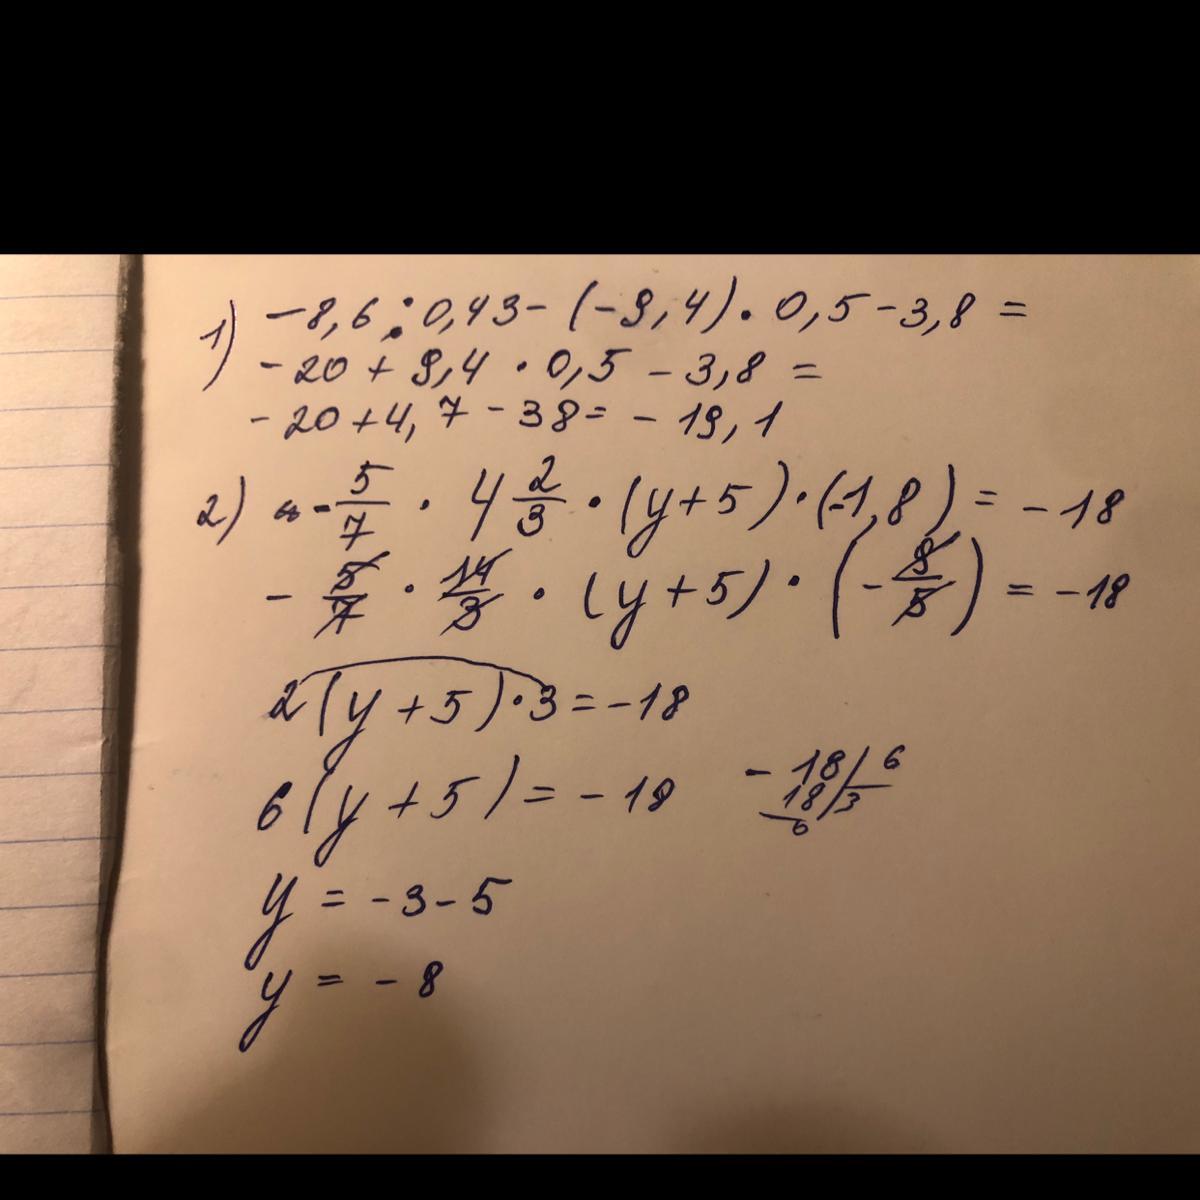 1) -8,6 : 0,43 - (-9,4) · 0,5 - 3,8 =
-20 + 9,4 · 0,5 - 3,8 =
-20 + 4,7 - 38 = -19,1
2) - 5/7 · 4 2/3 · (y + 5) · (-1,8) = -18
- 5/7 · 14/3 · (y + 5) · (- 9/5) = -18
2(y + 5) · 3 = -18
6(y + 5) = -18 -18 | 6
18 | 3
0
y = -3 - 5
y = -8